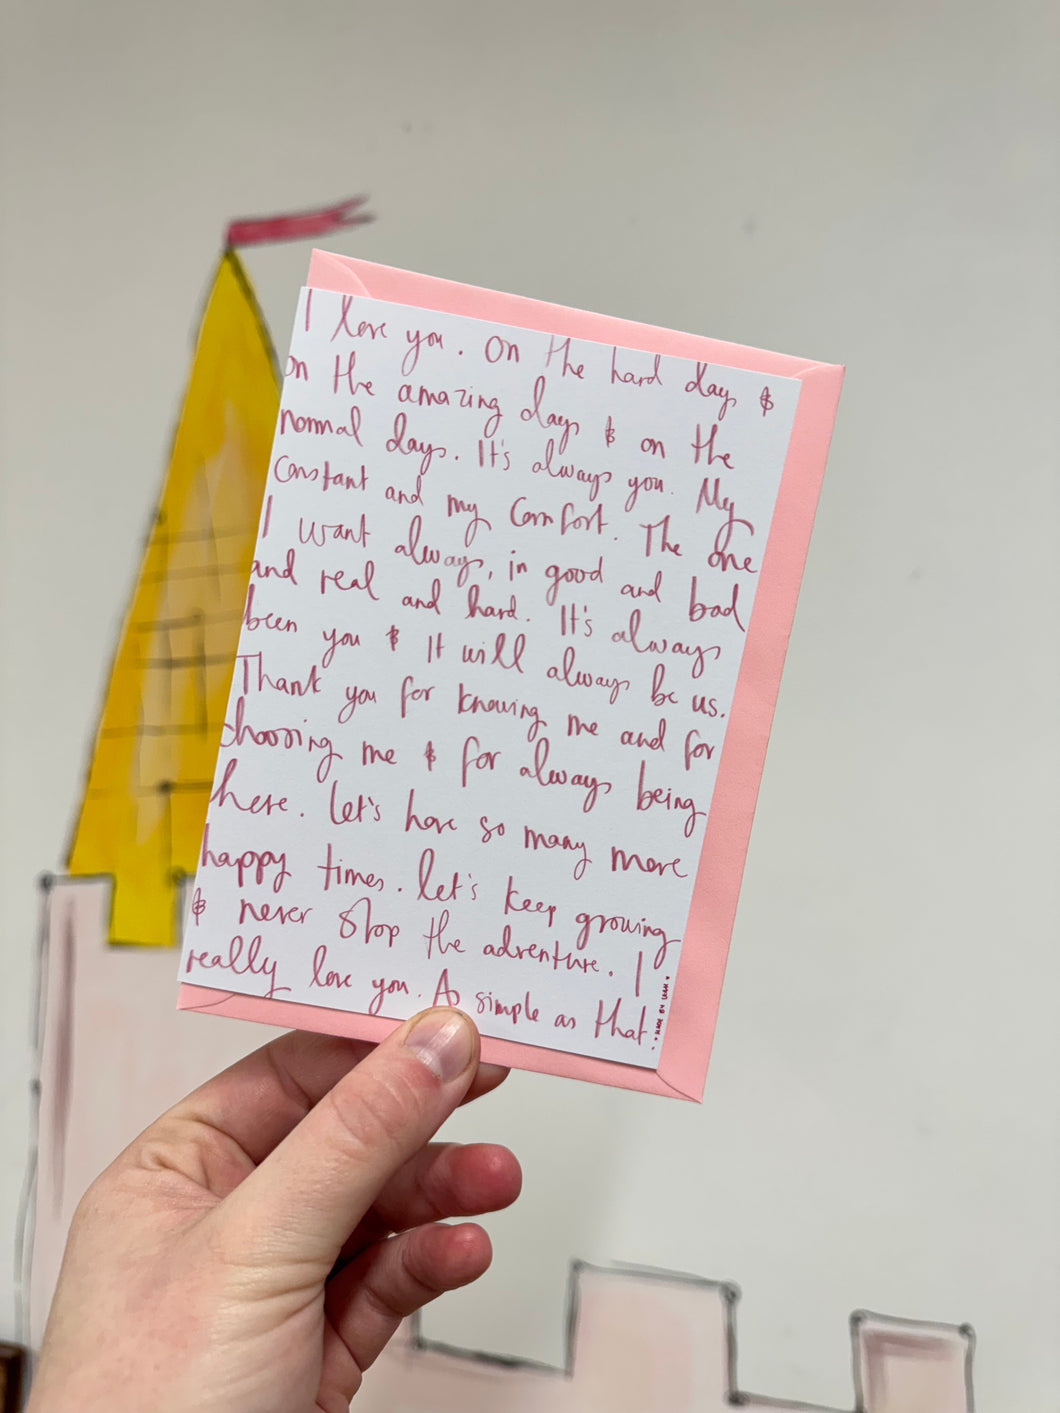 I love you. On the hard days &
on the amazing days & on the
normal days. It's always you. My
constant and my comfort. The one
I want always, in good and bad
and real and hard. It's always
been you & It will always be us.
Thank you for knowing me and for
choosing me & for always being
here. Let's have so many more
happy times. Let's keep growing
& never stop the adventure. I
really love you. As simple as that.
MADE BY LEAH